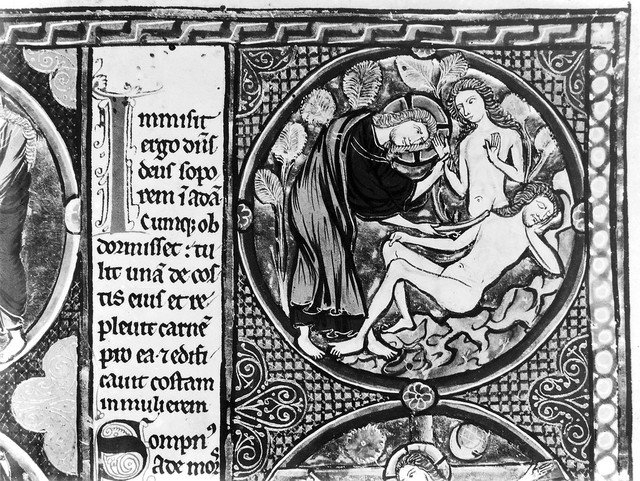 Inmisit
ergo dn̄s
deus sopo
rem ī adā
Cumq; ob
dormisset : tu
lit unā de cos
tis eius et re
pleuit carnē
pro ea · ⁊ edifi
cauit costam
in mulierem
Sompn᾽
ade mors